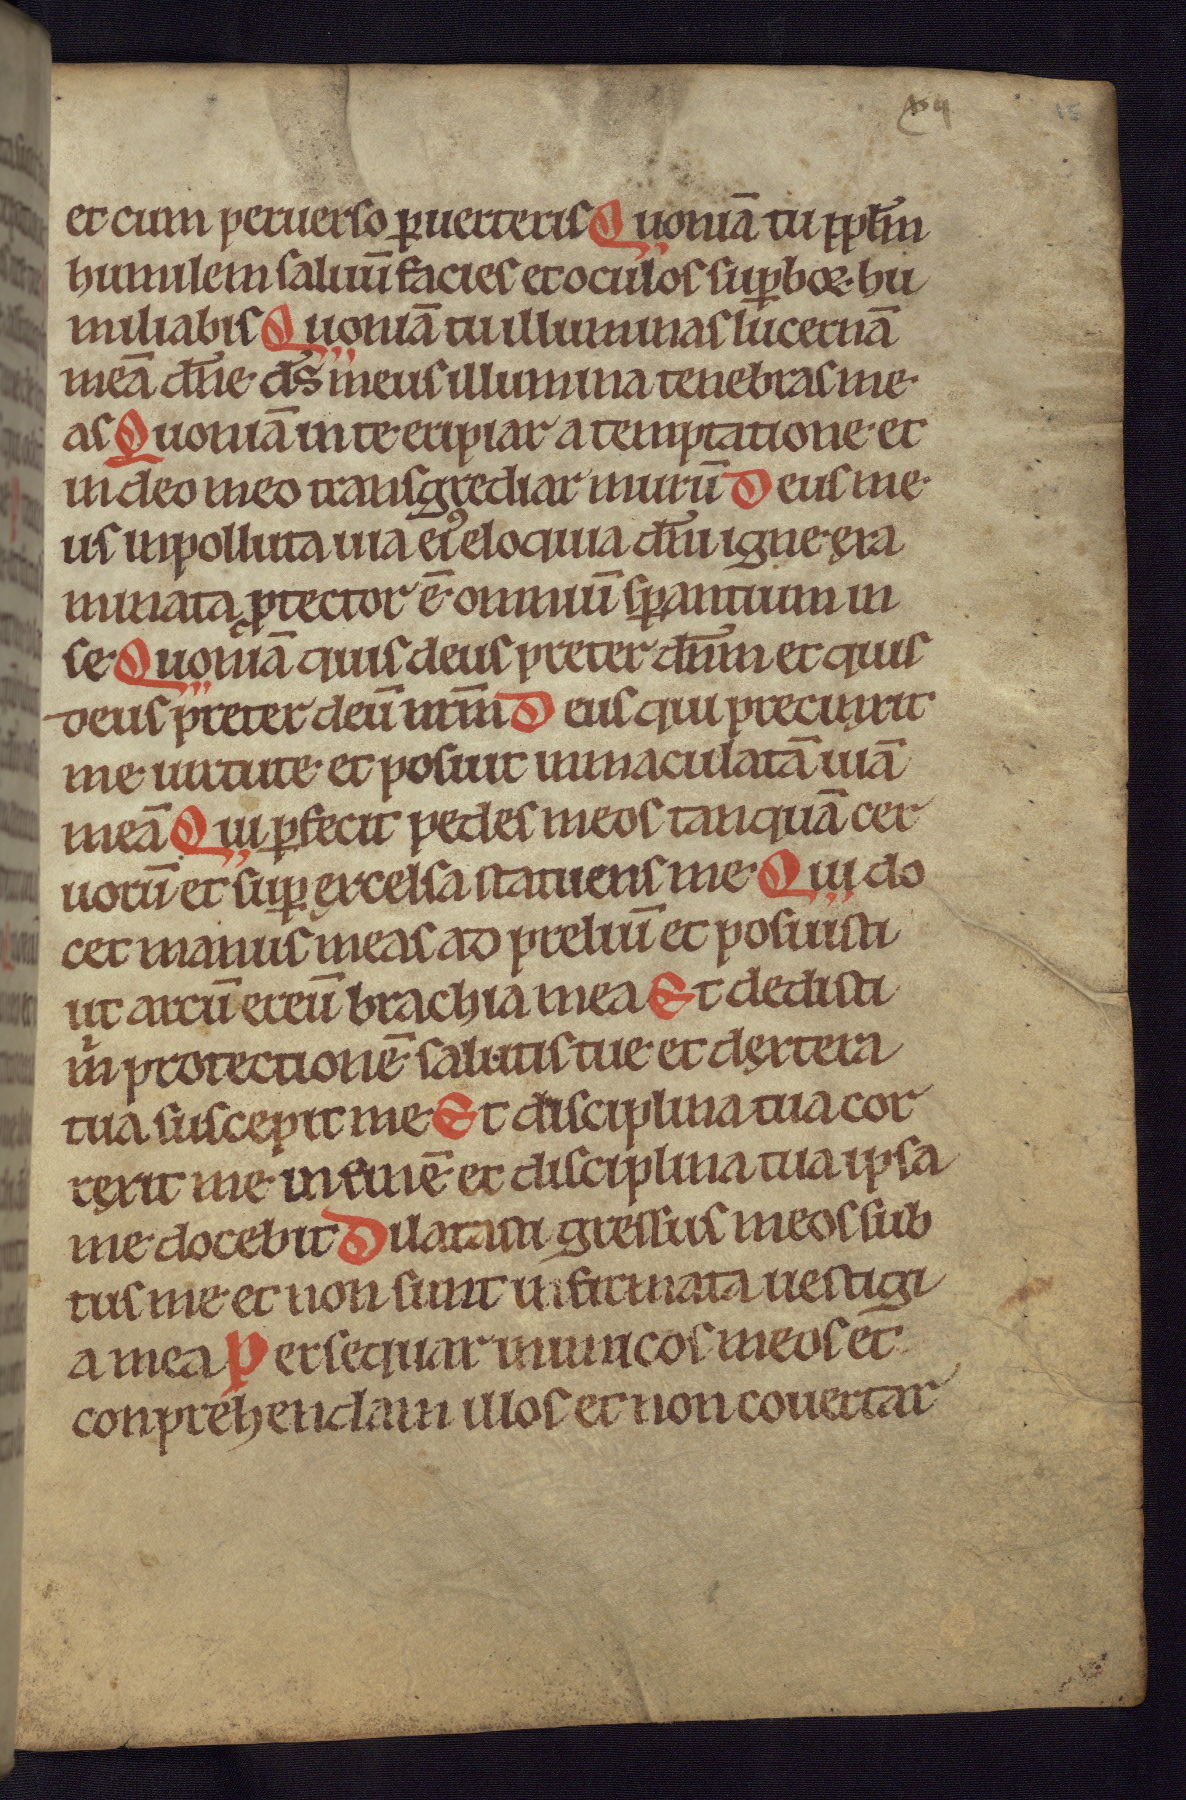 15
et cum peruerso ꝑuerteris Quoniā tu pp̄lm
humilem saluū facies et oculos suꝑboꝝ hu
miliabis Quoniā tu illuminas lucernā
meā dn̄e ds̄ meus illumina tenebras me
as Quoniā in te eripiar a temptatione et
in deo meo transgrediar murū Deus me
us inpolluta uia ei᷒ eloquia dn̄i igne exa
minata ꝓtector ē omniū sꝑantium in
se Quoniā quis deus preter dn̄m et quis
deus preter deū nr̄m Deus qui precinxit
me uirtute et posuit inmaculatā uiā
meā Qui ꝑfecit pedes meos tanquā cer
uorū et suꝑ excelsa statuens me Qui do
cet manus meas ad preliū et posuisti
ut arcū ereū brachia mea Et dedisti
m̍ protectionē salutis tue et dextera
tua suscepit me Et disciplina tua cor
rexit me in finē et disciplina tua ipsa
me docebit Dilatasti gressus meos sub
tus me et non sunt infirmata uestigi
a mea Persequar inimicos meos et
conprehendam illos et non couertar